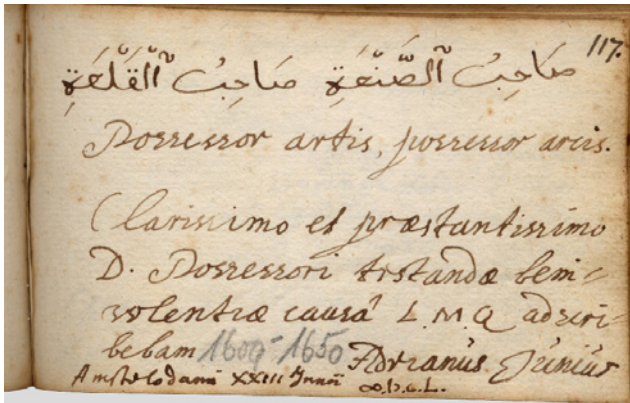 117.
صَاحِبُ ٱلصَّنْعَةِ صَاحِبُ ٱلْقَلْعَةِ
Possessor artis, possessor arcis.
Clarissimo et præstantissimo
D. Possessori testandæ beni-
volentiæ causâ L. M. Q adscri-
bebam 1609-1650 Adrianus Junius
Amstelodami XXIII Junii